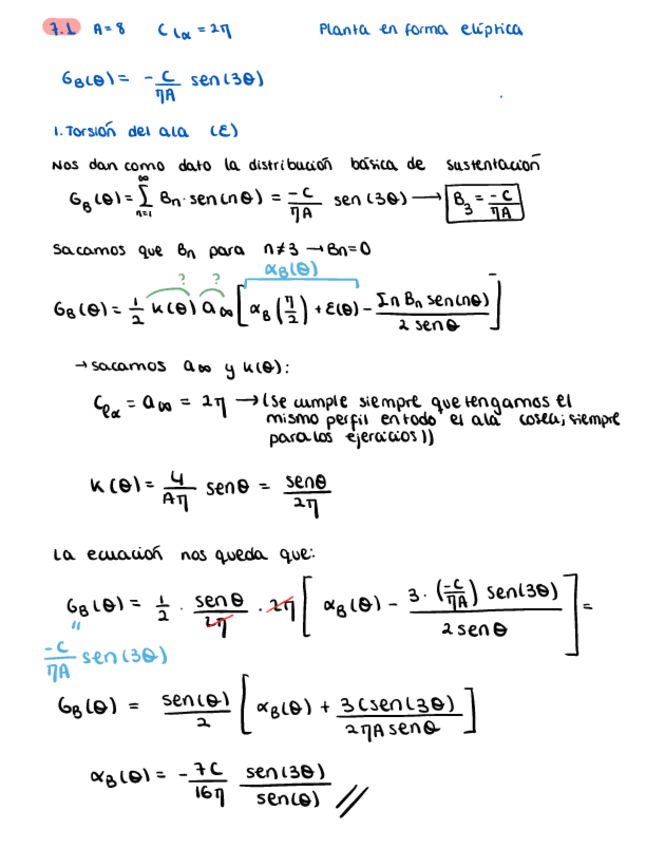 7.1 A=8 Clα = 2η Planta en forma elíptica
G_B(θ) = -C/ηA sen(3θ)
1. Torsión del ala (ε)
Nos dan como dato la distribución básica de sustentación
G_B(θ) = ∞ Σ n=1 Bn · sen(nθ) = -C/ηA sen(3θ) → B3 = -C/ηA
Sacamos que Bn para n≠3 → Bn=0
α_B(θ)
? ?
G_B(θ) = 1/2 K(θ) a∞ [α_B(η/2) + ε(θ) - Σn Bn sen(nθ)/2 senθ]
→ sacamos a∞ y K(θ):
Clα = a∞ = 2η → (Se cumple siempre que tengamos el
mismo perfil en todo el ala (osea; siempre
para los ejercicios))
K(θ) = 4/Aη senθ = senθ/2η
La ecuación nos queda que:
G_B(θ) = 1/2 · senθ/2η · 2η [α_B(θ) - 3·(-C/ηA) sen(3θ)/2 senθ] =
"
-C/ηA sen(3θ)
G_B(θ) = sen(θ)/2 [α_B(θ) + 3C sen(3θ)/2ηA senθ]
α_B(θ) = -7C/16η sen(3θ)/sen(θ) //